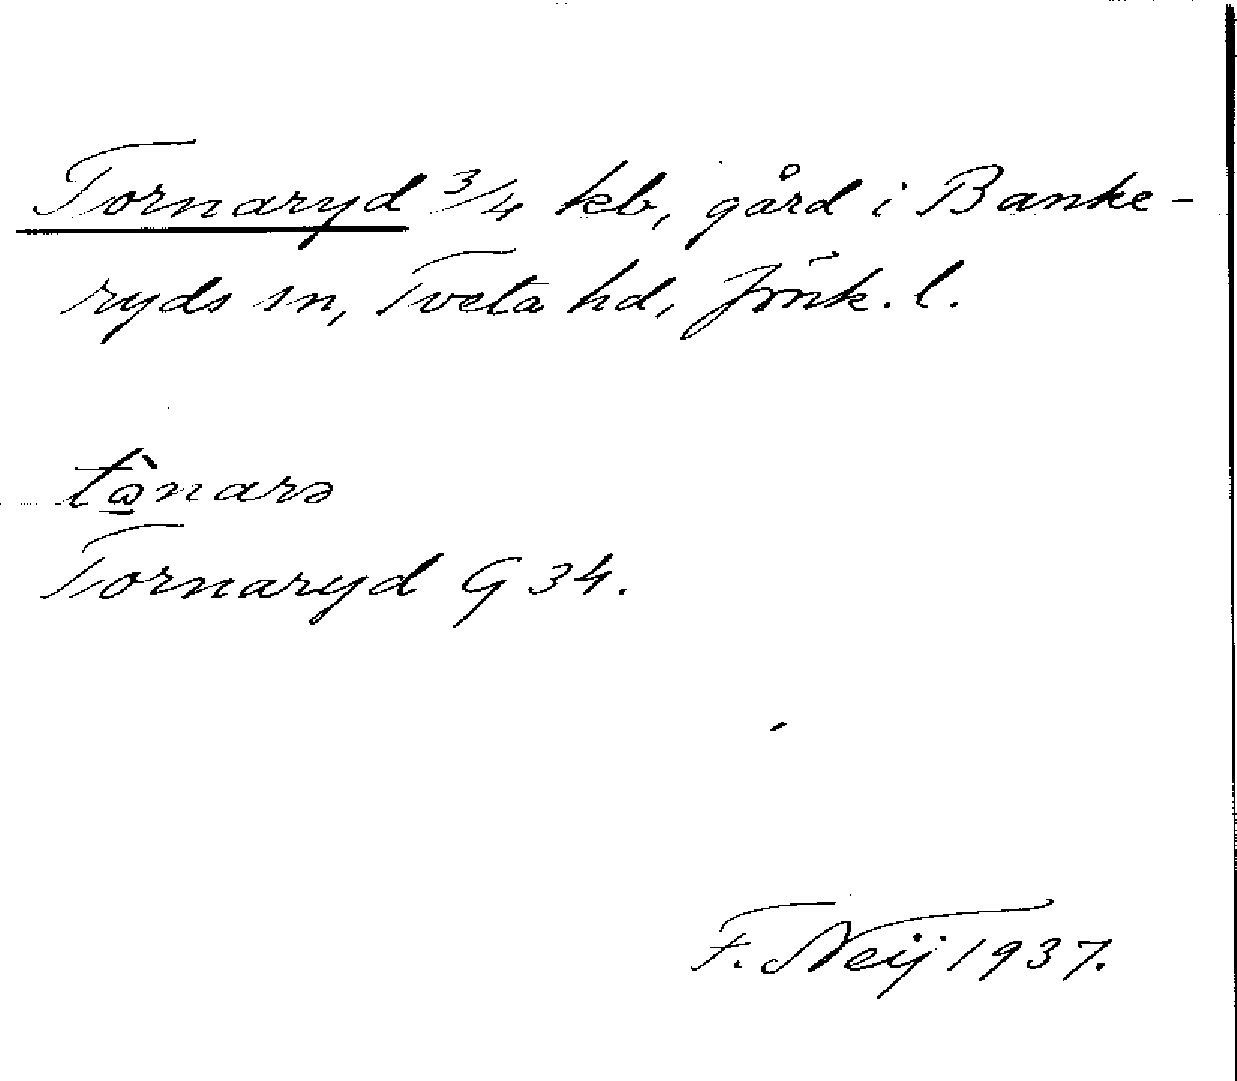 Tornaryd 3/4 kb, gård i Banke-
ryds sn, Tveta hd, Jönk. l.
tò̲narə
Tornaryd G 34.
F. Neij 1937.